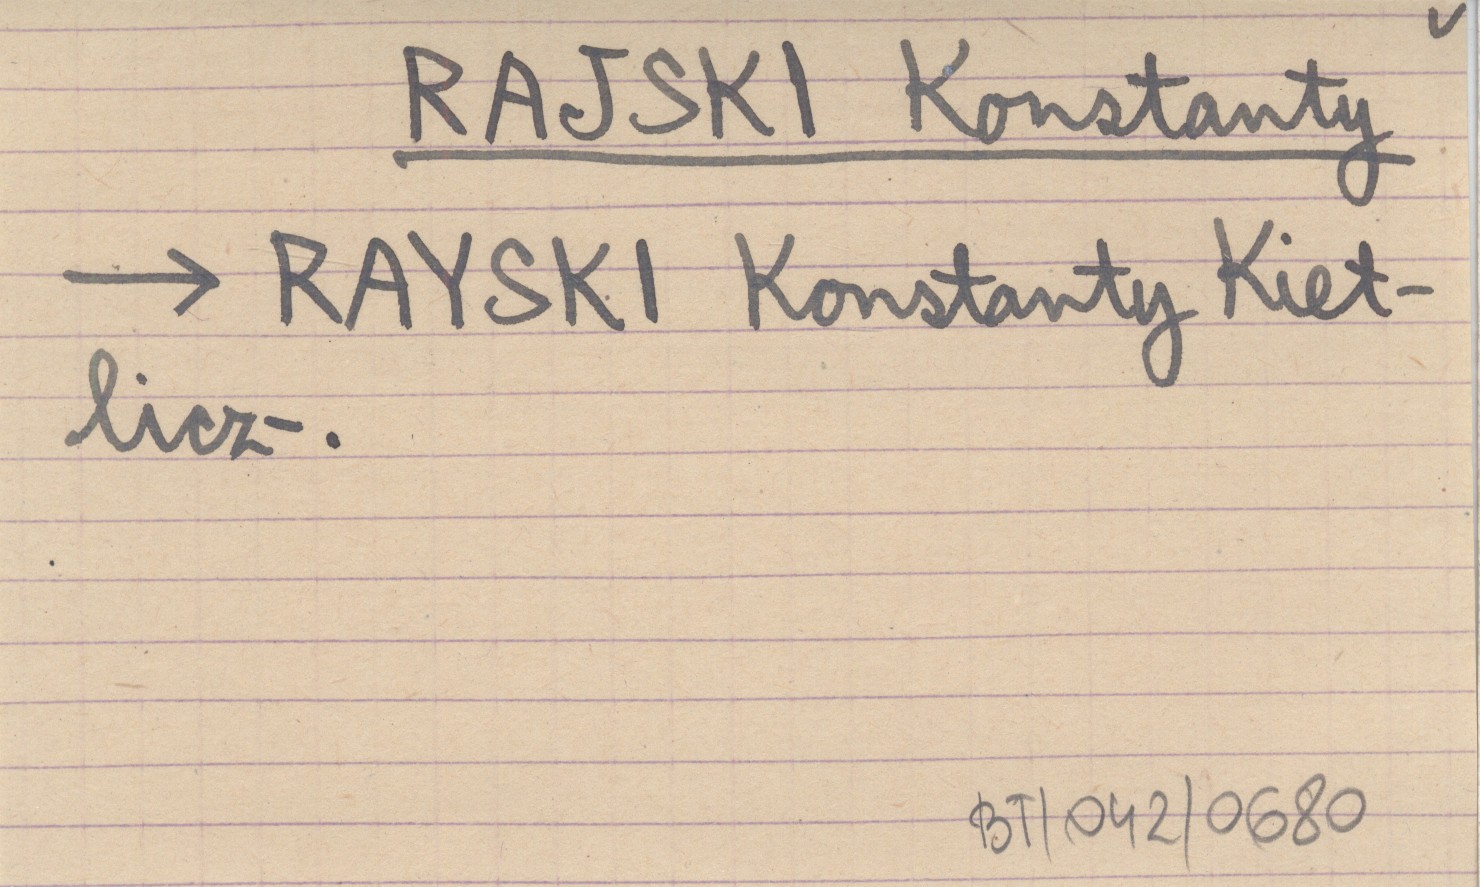 RAJSKI Konstanty
→ RAYSKI Konstanty Kiet-
licz-.
BT/042/0680